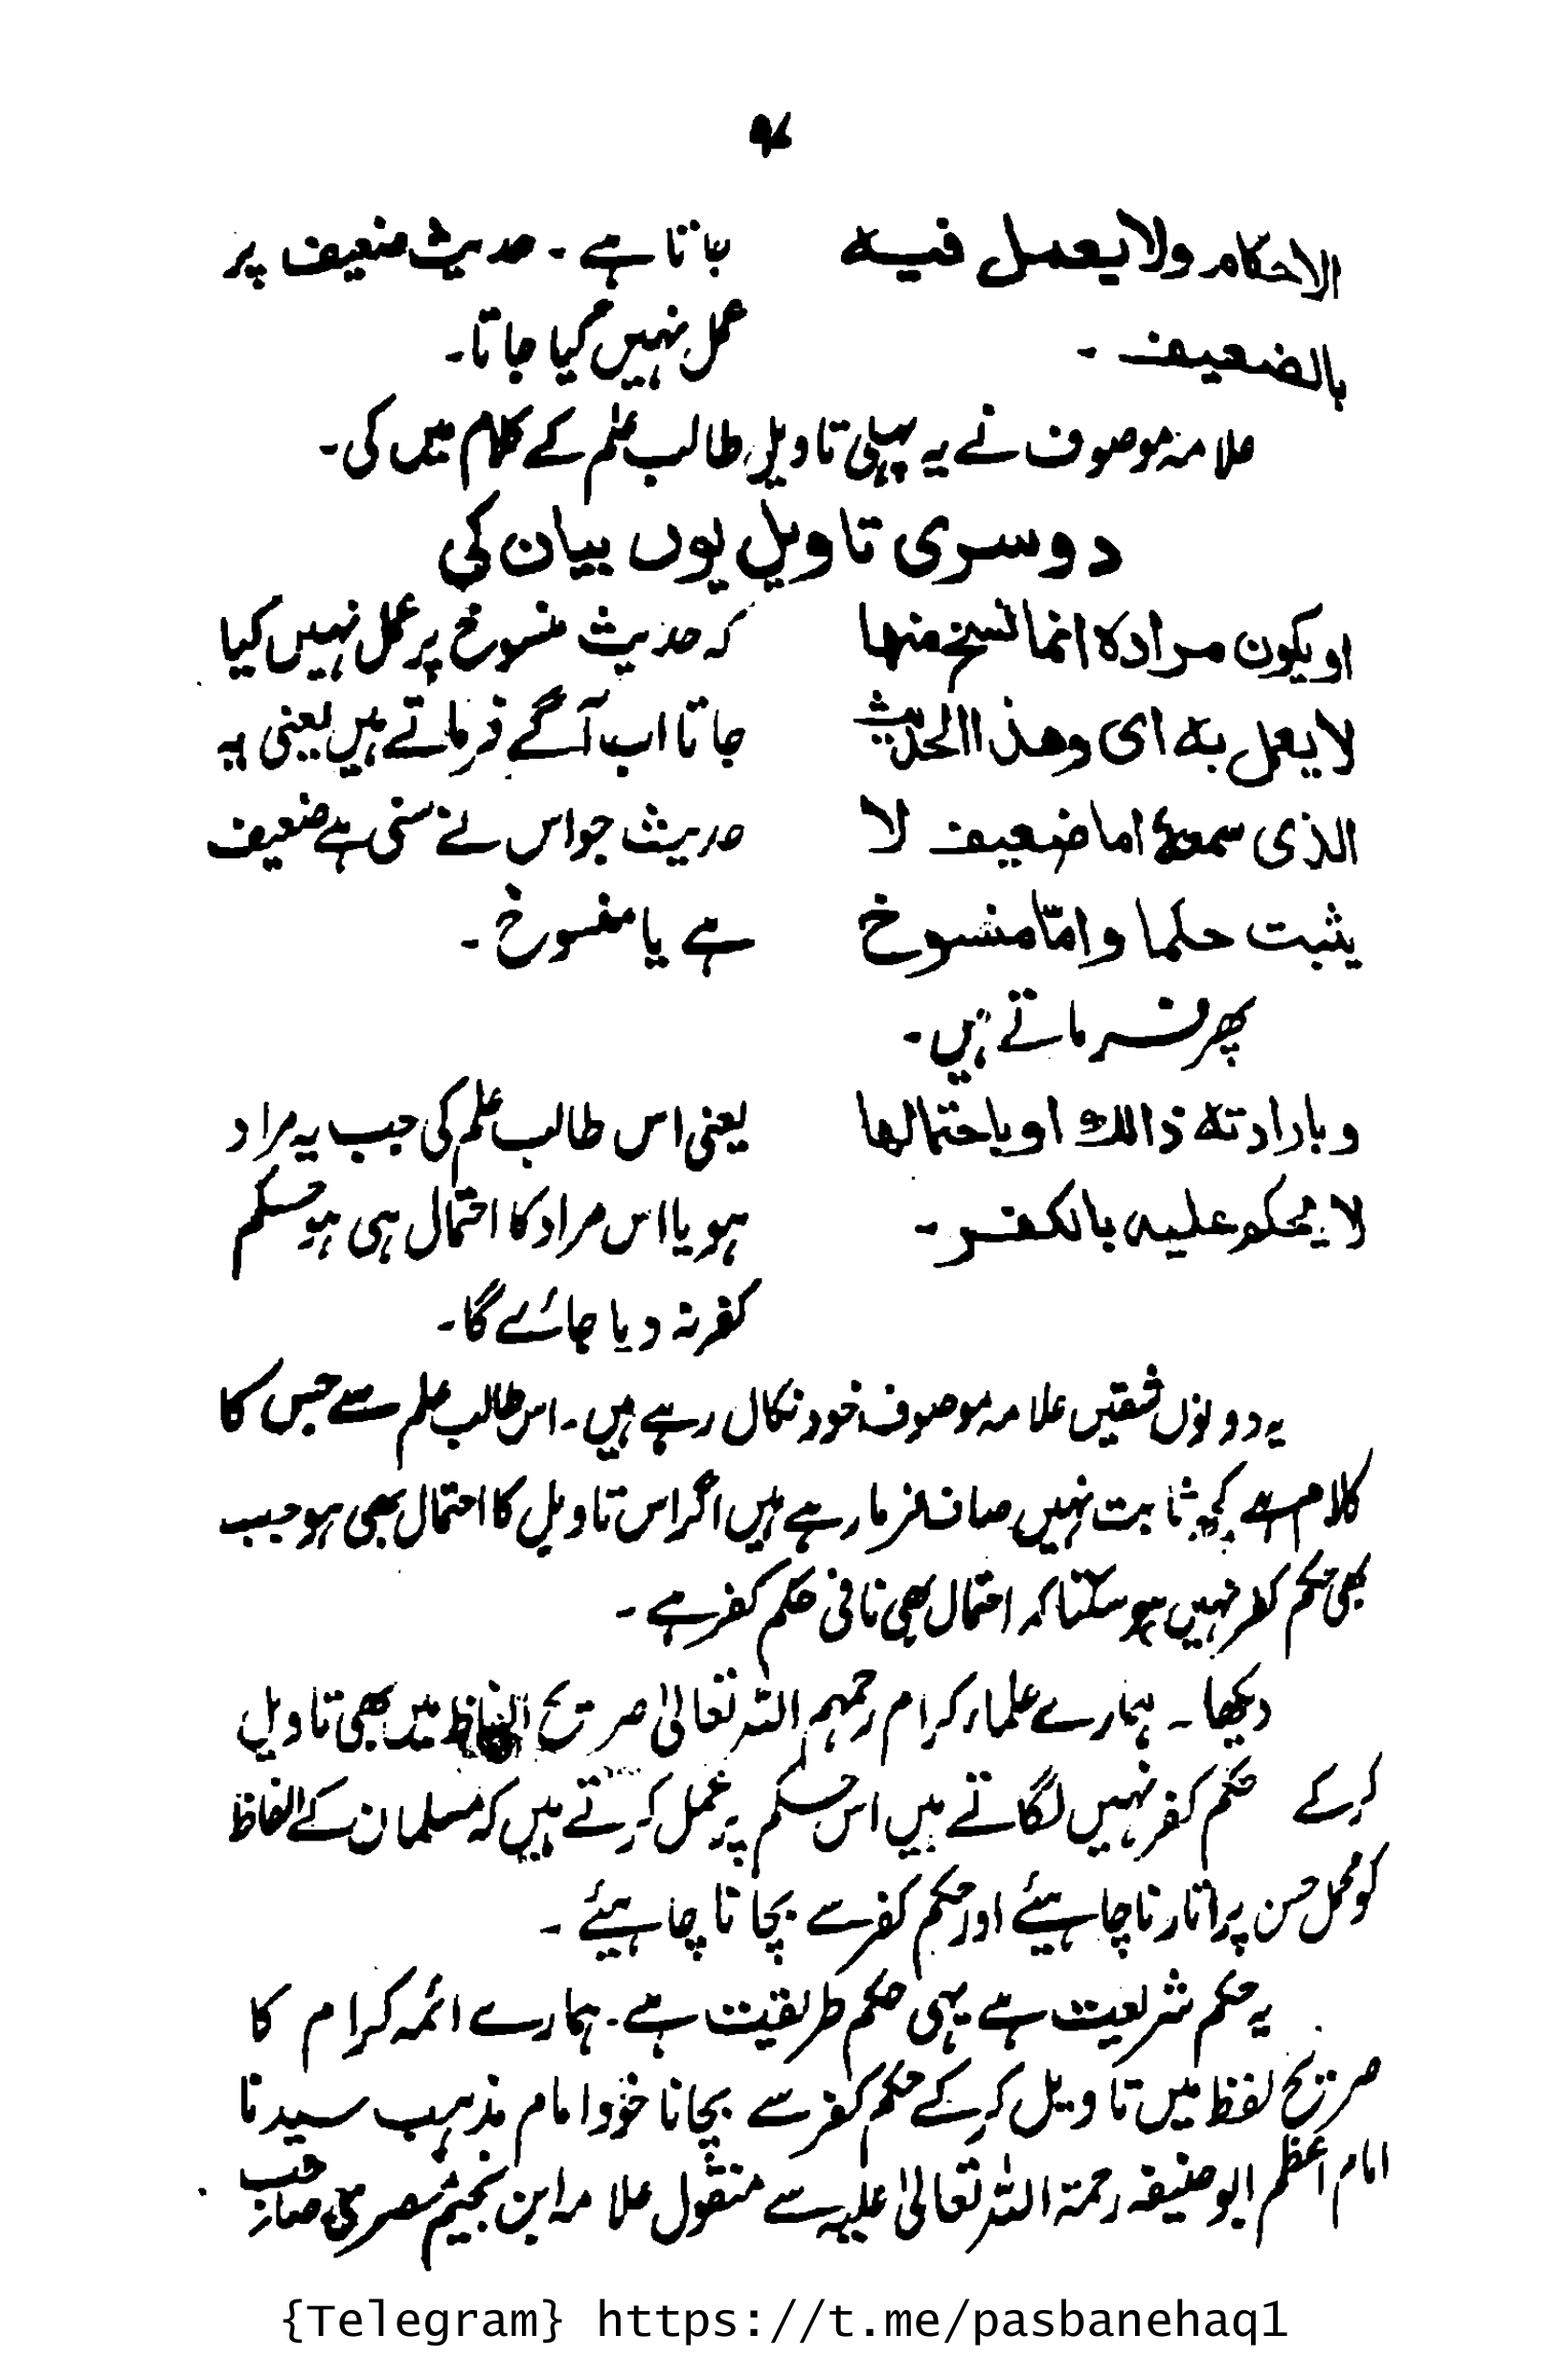 الاحکام ولا یعمل فیہ جاتا ہے ۔ حدیث ضعیف پر
بالضعیف ۔ عمل نہیں کیا جاتا۔
علامہ موصوف نے یہ پہلی تاویل طالب علم کے کلام میں کی۔
دوسری تاویل یوں بیان کی
او یکون مرادہ انما نسخ منہا کہ حدیث منسوخ پر عمل نہیں کیا
لا یعمل بہ ای وھذا الحدیث جاتا اب آگے فرماتے ہیں یعنی یہ
الذی سمعہ اما ضعیف لا حدیث جو اس نے سنی ہے ضعیف
یثبت حکما وامّا منسوخ ہے یا منسوخ ۔
پھر فرماتے ہیں۔
وبارادتہ ذالک او باحتمالھا یعنی اس طالب علم کی جب یہ مراد
لا یحکم علیہ بالکفر۔ ہو یا اس مراد کا احتمال ہی ہو حکم
کفر نہ دیا جائے گا۔
یہ دونوں شقیں علامہ موصوف خود نکال رہے ہیں۔ اس طالب علم سے جس کا
کلام سے کچھ ثابت نہیں صاف فرما رہے ہیں اگر اس تاویل کا احتمال بھی ہو جب
بھی حکم کفر نہیں ہو سکتا کہ احتمال بھی نافی حکم کفر ہے ۔
دیکھا ۔ ہمارے علماء کرام رحمہم اللہ تعالیٰ صریح الفاظ میں بھی تاویل
کر کے حکم کفر نہیں لگاتے ہیں اس حکم پر عمل کرتے ہیں کہ مسلمان کے الفاظ
کو محمل حسن پر اتارنا چاہیئے اور حکم کفر سے بچانا چاہیئے ۔
یہ حکم شریعت ہے یہی حکم طریقیت ہے ۔ ہمارے ائمہ کرام کا
صریح لفظ میں تاویل کر کے حکم کفر سے بچانا خود امام مذہب سیدنا
امام اعظم ابو حنیفہ رحمۃ اللہ تعالیٰ علیہ سے منقول علامہ ابن نجیم مصری صاحب
{Telegram} https://t.me/pasbanehaq1